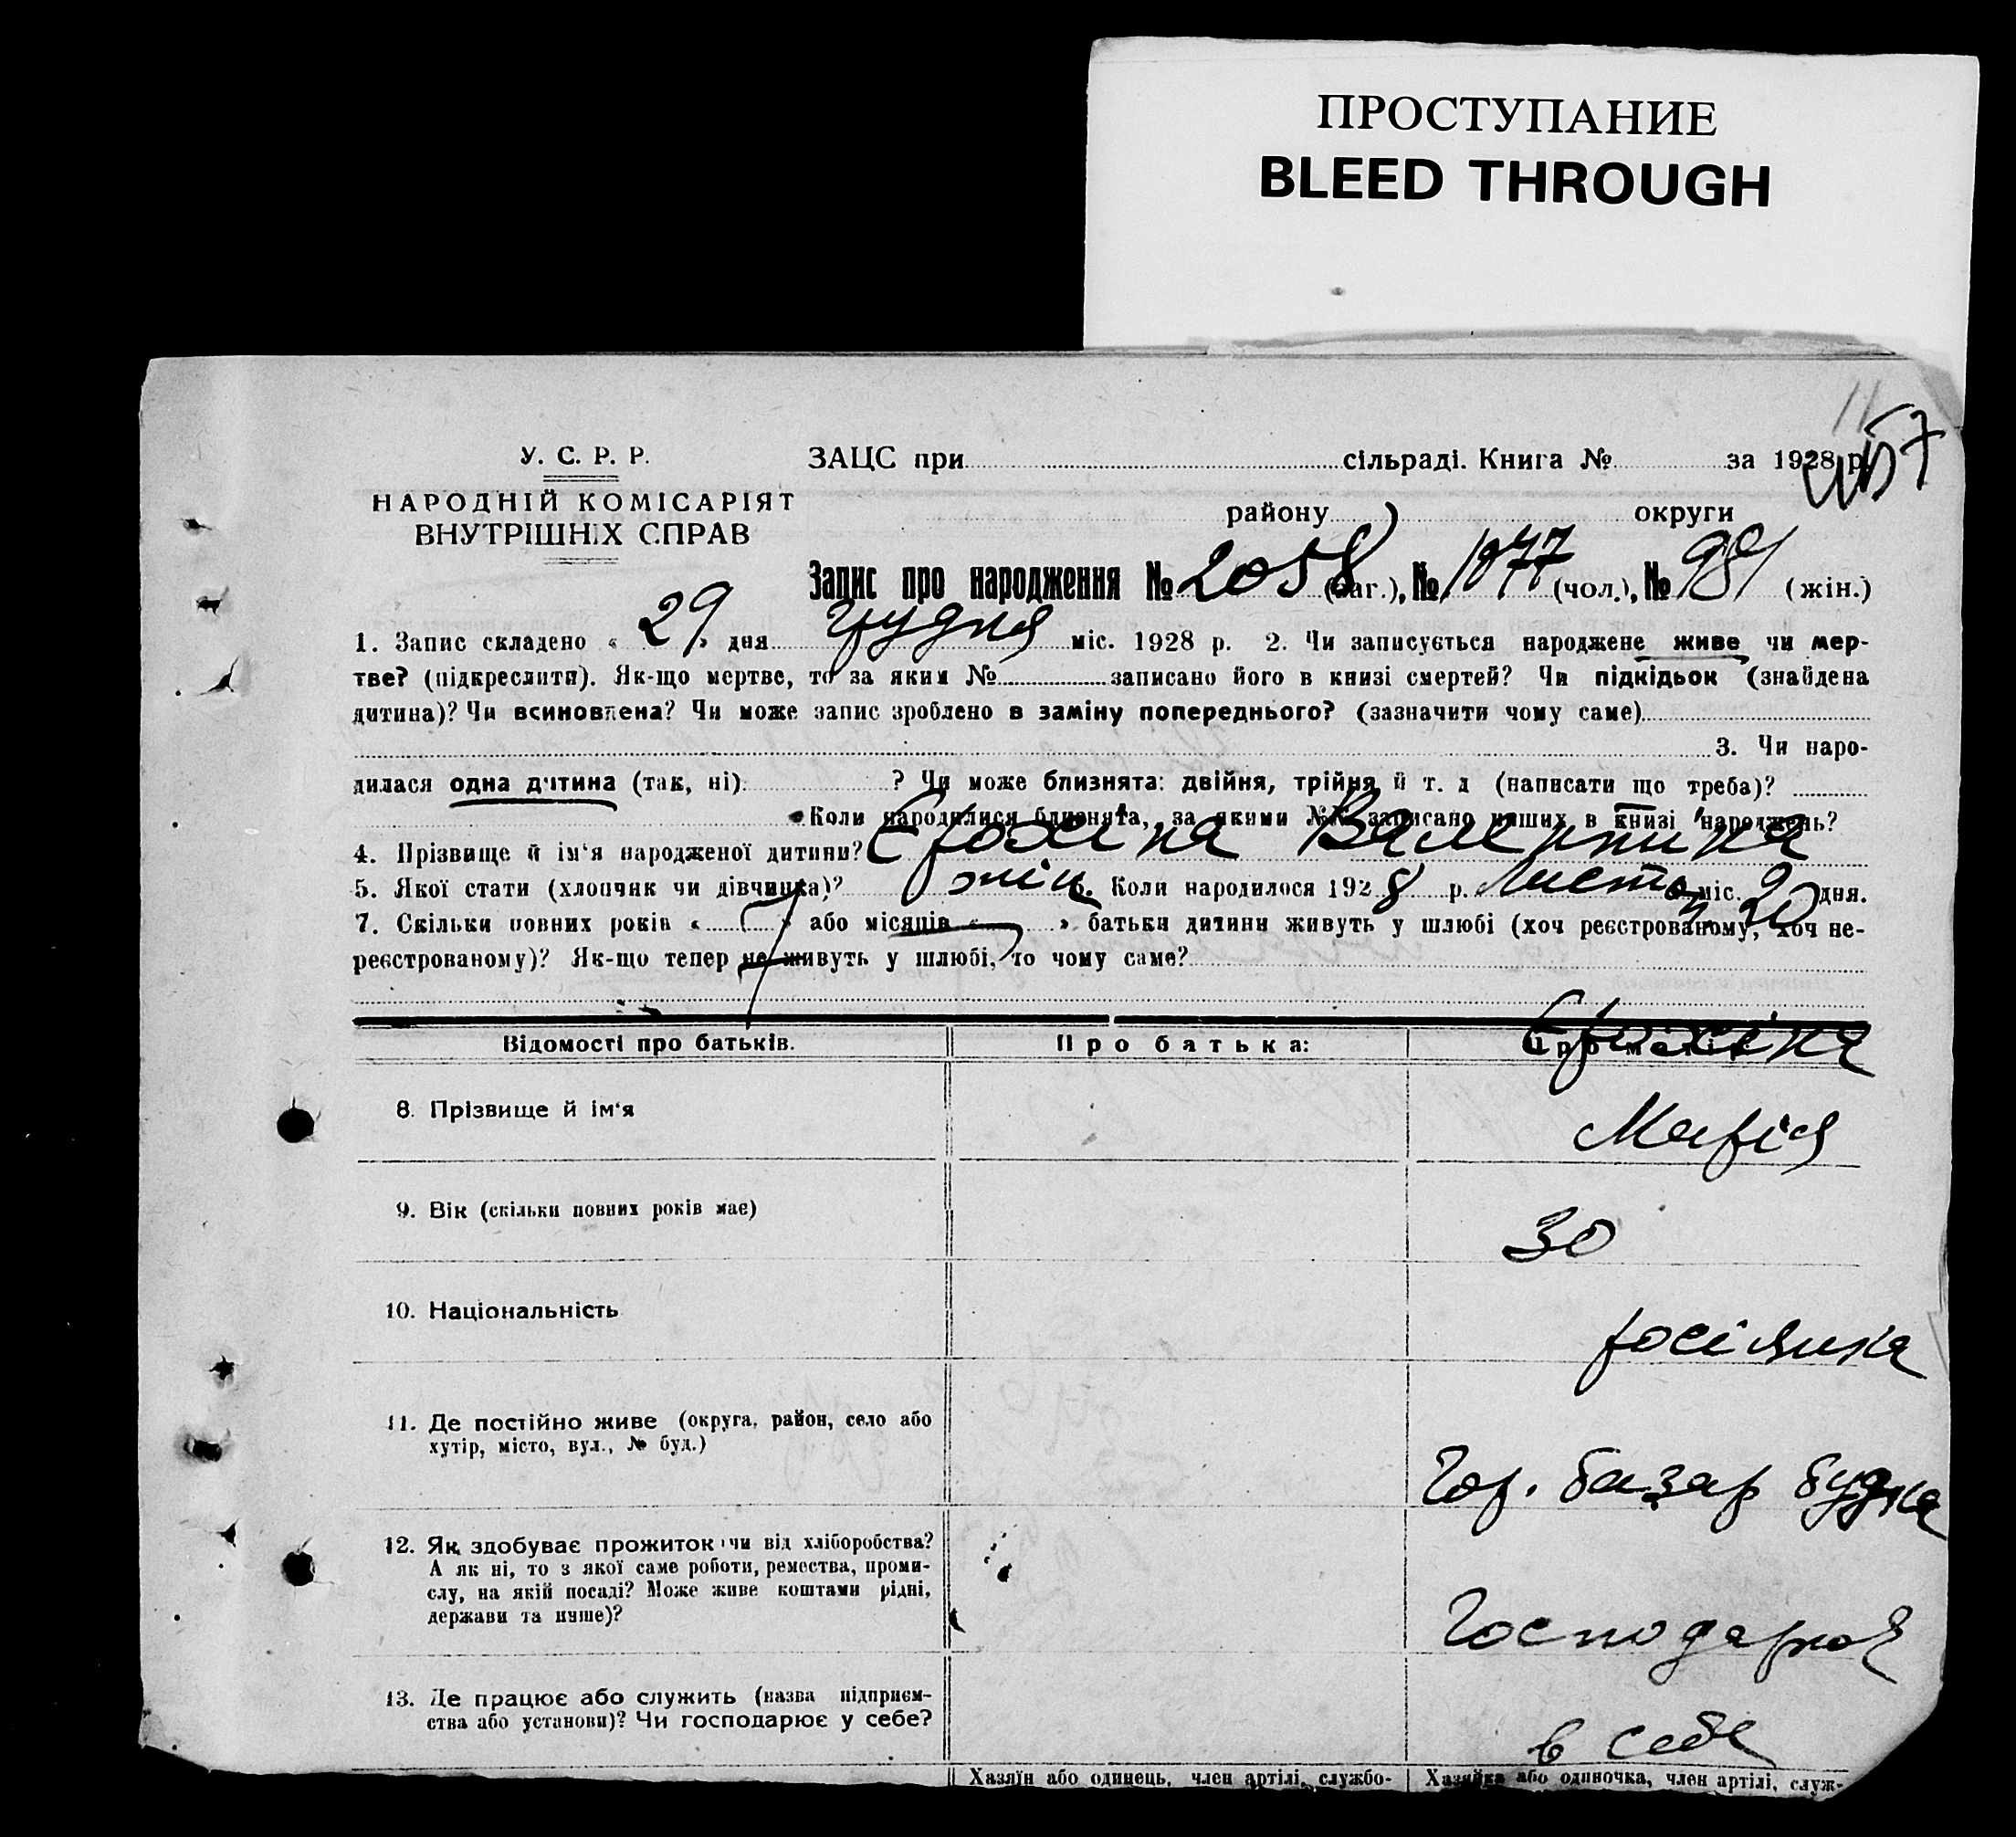 ПРОСТУПАНИЕ
BLEED THROUGH
У. С. Р. Р.
НАРОДНІЙ КОМІСАРІЯТ
ВНУТРІШНІХ СПРАВ
ЗАЦС при сільраді. Книга № за 1928 р.
району округи
Запис про народження № 2058 (заг.), № 1077 (чол.), № 981 (жін.)
1. Запис складено « 29 » дня грудня міс. 1928 р. 2. Чи записується народжене живе чи мер-
тве? (підкреслити). Як-що мертве, то за яким № записано його в книзі смертей? Чи підкідьок (знайдена
дитина)? Чи всиновлена? Чи може запис зроблено в заміну попереднього? (зазначити чому саме)
3. Чи наро-
дилася одна дитина (так, ні). ? Чи може близнята: двійня, трійня й т. д (написати що треба)?
Коли народилися близнята, за якими №№ записано инших в книзі народжень?
4. Прізвище й ім'я народженої дитини? Єрохіна Валентина
5. Якої стати (хлопчик чи дівчинка)? жін. 6. Коли народилося 1928 р. Листоп міс. 20 дня.
7. Скільки повних років « » або місяців « » батьки дитини живуть у шлюбі (хоч реєстрованому, хоч не-
реєстрованому)? Як-що тепер не живуть у шлюбі, то чому саме?
Відомості про батьків. Про батька: Про матір
8. Прізвище й ім'я Єрохіна
Марія
9. Вік (скільки повних років має) 30
10. Національність росіянка
11. Де постійно живе (округа, район, село або
хутір, місто, вул., № буд.) Гор. базар будка
12. Як здобуває прожиток чи від хліборобства?
А як ні, то з якої саме роботи, ремества, проми-
слу, на якій посаді? Може живе коштами рідні,
держави та инше)? Господарює
13. Де працює або служить (назва підприєм-
ства або установи)? Чи господарює у себе? в себе
Хазяїн або одинець, член артілі, службо- Хазяйка або одиночка, член артілі, служ-